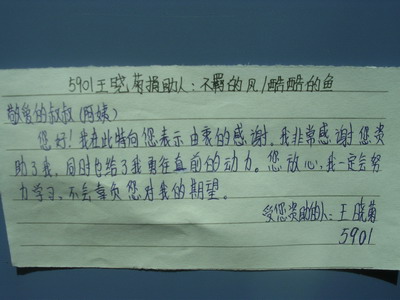 5901王晓菊捐助人：不羁的风/酷酷的鱼
敬爱的叔叔(阿姨)
您好！我在此特向您表示由衷的感谢。我非常感谢您资
助了我，同时也给了我勇往直前的动力。您放心，我一定会努
力学习，不会辜负您对我的期望。
受您资助的人：王晓菊
5901